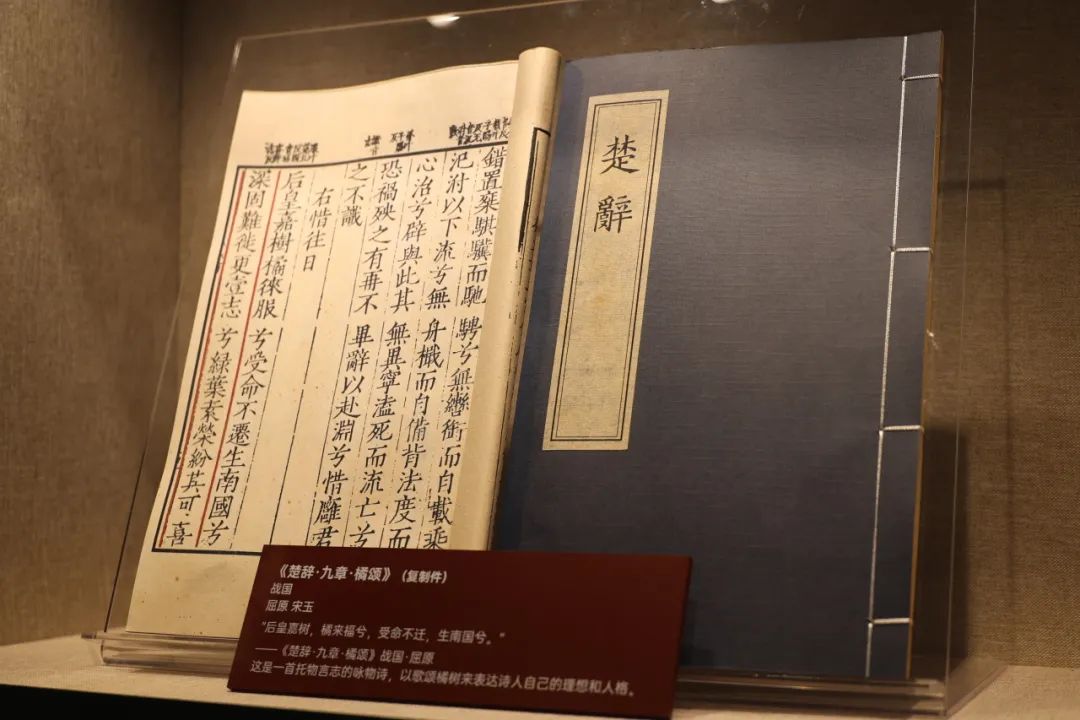 錯置椉騏驥而馳騁兮無轡銜而自載椉
氾泭以下流兮無舟檝而自備背法度而
心治兮辟與此其無異寧溘死而流亡兮
恐禍殃之有再不畢辭以赴淵兮惜廱君
之不識
右惜往日
后皇嘉樹橘徠服兮受命不遷生南國兮
深固難徙更壹志兮綠葉素榮紛其可喜
楚辭
《楚辞·九章·橘颂》(复制件)
战国
屈原 宋玉
“后皇嘉树，橘来福兮，受命不迁，生南国兮。”
——《楚辞·九章·橘颂》战国·屈原
这是一首托物言志的咏物诗，以歌颂橘树来表达诗人自己的理想和人格。